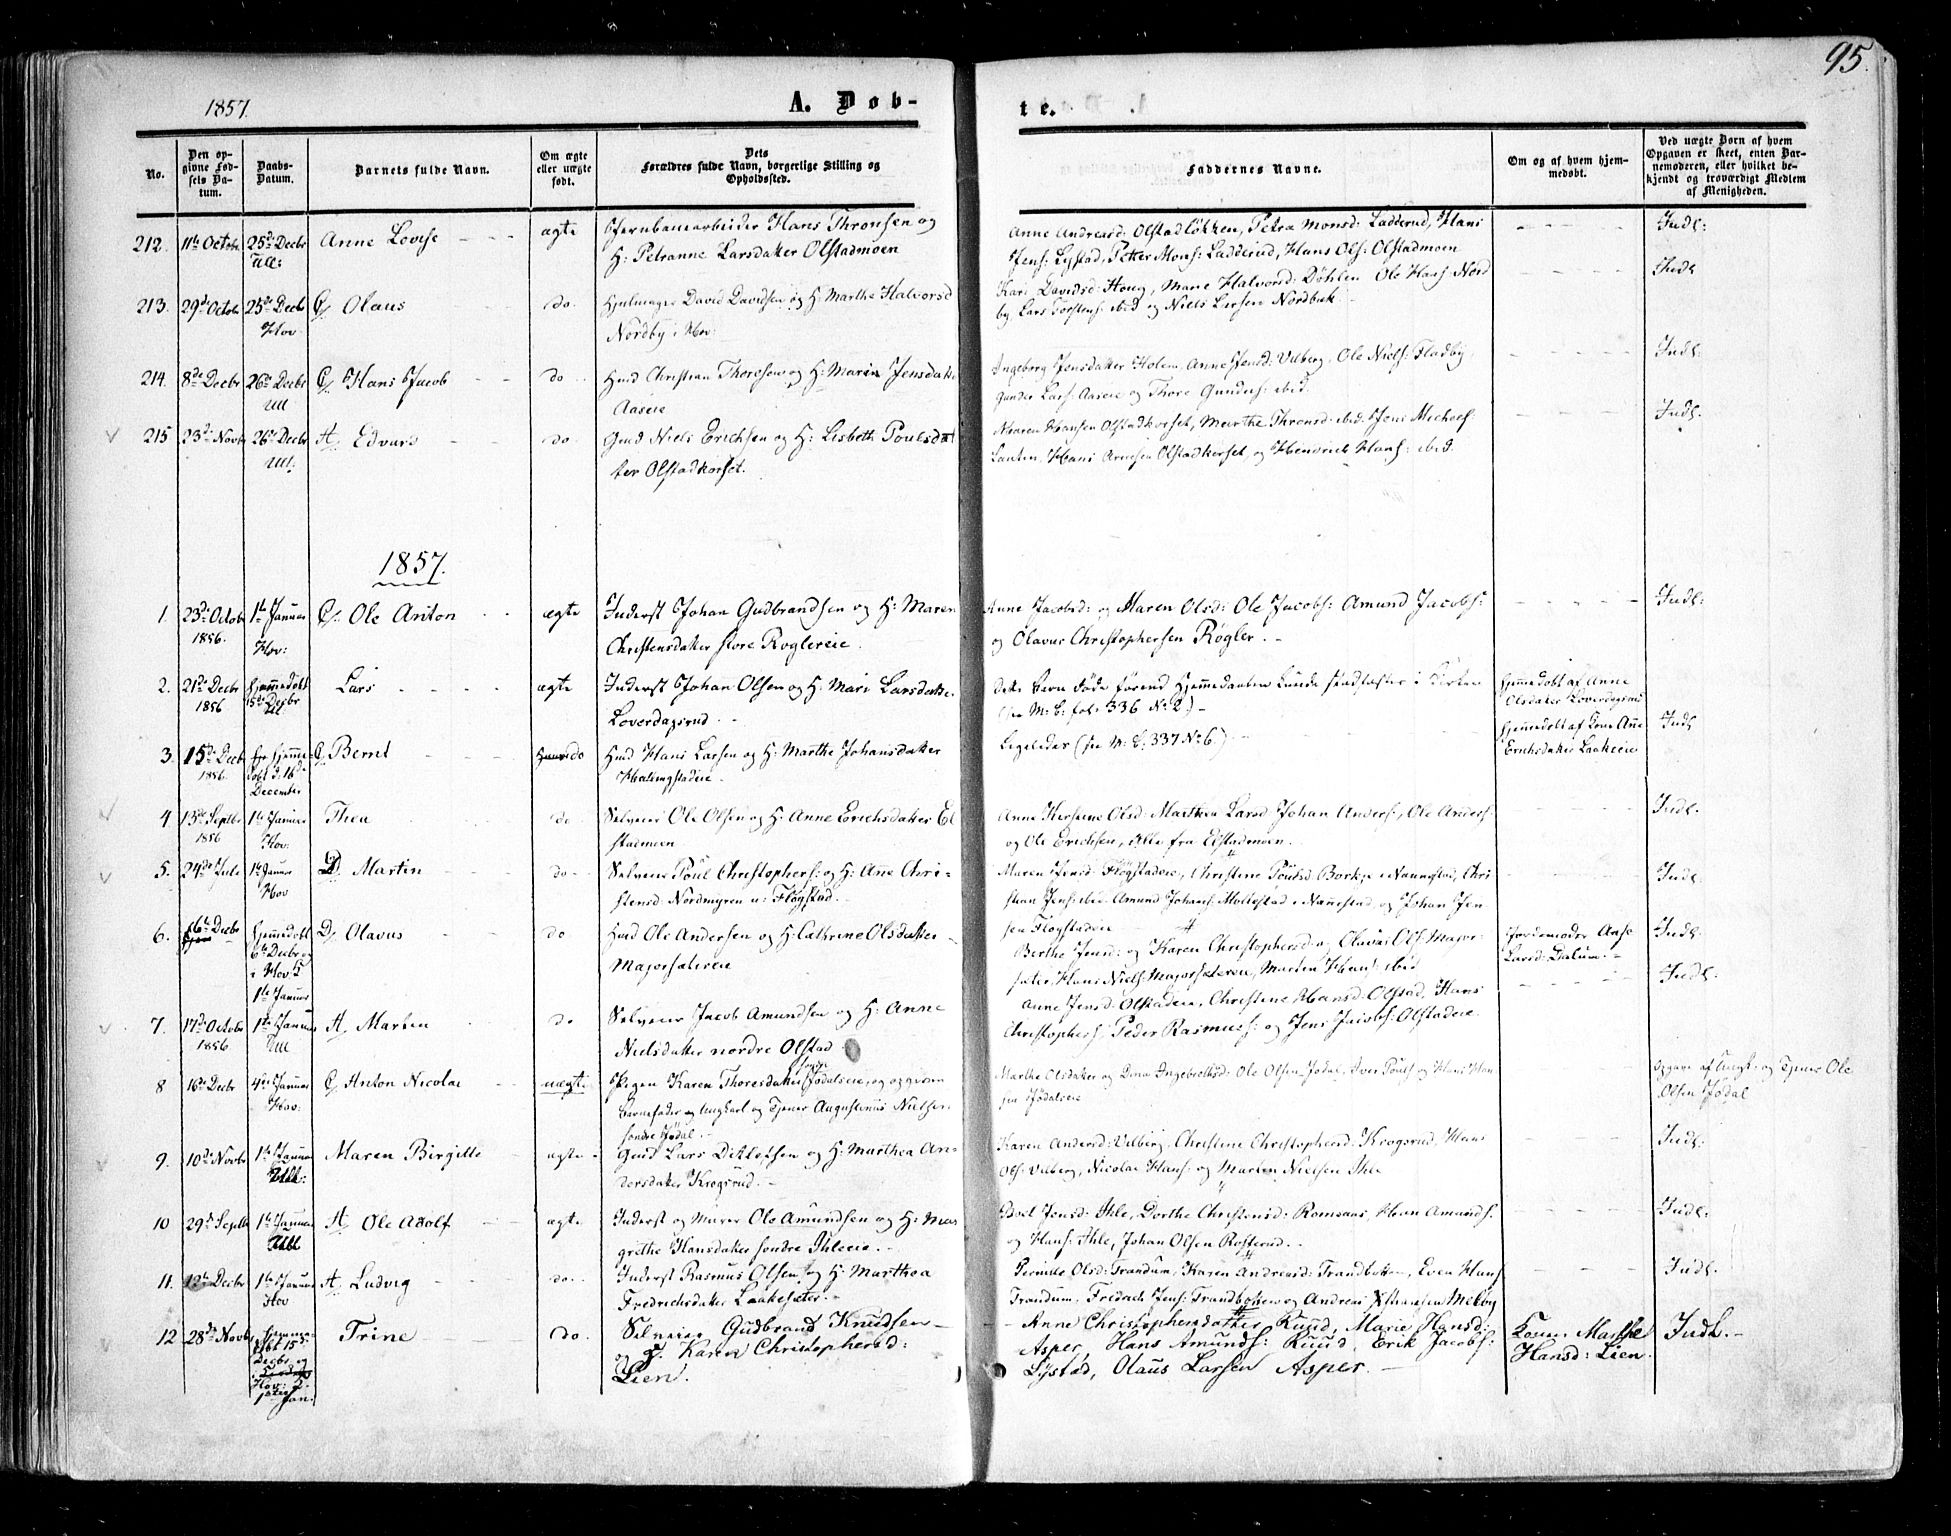 95.
1857.
A. Døb-
te.
No.
Den op-
givne Fød-
sels Da-
tum.
Daabs-
Datum.
Barnets fulde Navn.
Om ægte
eller uægte
født.
Dets
Forældres fulde Navn, borgerlige Stilling og
Opholdssted.
Faddernes Navne.
Om og af hvem hjem-
medøbt.
Ved uægte Børn af hvem
Opgaven er skeet, enten Bar-
nemoderen, eller hvilket be-
kjendt og troværdigt Medlem
af Menigheden.
212. 11te Octobr 25de Decbr Ull: Anne Lovise ægte
Jernbanearbeider Hans Thronsen og
H: Petranne Larsdatter Olstadmoen
Anne Andreasd: Olstadløkken, Petra Monsd: Ladderud, Hans
Jens: Lystad, Petter Mons: Ladderud, Hans Ols: Olstadmoen
Indl:
213. 29de Octobr 25de Decbr Hov Olaus do.
Hjulmager David Davidsen og H: Marthe Halvorsd
Nordby i Hov:
Kari Davidsd: Houg, Marie Halvorsd: Døhlen Ole Hans: Nord
by, Lars Torstens: ibid og Niels Larsen Nordbak
Indl
214. 8de Decbr 26de Decbr Ull Hans Jacob do
Hmd Christian Thoresen og H: Maria Jensdatter
Aaseie
Ingeborg Jensdatter Holm, Anne Jensd: Vilberg, Ole Niels: Fladby,
Gunder Lars: Aaseie og Thore Gunders: ibid.
Indl:
215 23de Novbr 26de Decbr Ull. A, Edvard do
Gmd Niels Erichsen og H: Lisbeth Poulsdat
ter Olstadkorset.
Maren Hansen Olstadkorset, Marthe Thronsd: ibid. Jens Michels:
Hans Arnesen Olstadkorset, og Hendrich Hans: ibid.
Indl.
1857.
1. 23de Octobr 1856. 1te Januar Hov: Ole Anton ægte
Inderst Johan Gudbrandsen og H: Maren
Christensdatter store Roglereie.
Anne Jacobsd: og Maren Olsd: Ole Jacobs: Amund Jacobs:
og Olavus Christophersen Røgler.
Indl:
2. 21de Decbr 1856 Hjemmedøbt Decbr Ull Lars ægte
Inderst Johan Olsen og H: Mari Larsdatter
Loverdagsrud.
Dette Barn døde førend Hjemmedaaben kunde stadfæstes i Kirken
(see M: C: fol: 336 No 2.)
Hjemmedøbt af Anne
Olsdatter Loverdagsrud
3. 15de Decbr 1856. Hjemme døbt d: 16de December Bernt do
Hmd Hans Larsen og H: Marthe Johansdatter
Ligeledes (see M: C: 337 No 6.)
Hjemmedøbt af Kone Anne
Erichsdatter Laakeeie
Indl
4 13de Septbr 1856 1te Januar Hov: Thea do
Selveier Ole Olsen og H: Anne Erichsdatter El
stadmoen
Anne Kirstine Olsd: Marthea Larsd Johan Anders:, Ole Anders:
og Ole Erichsen, Alle fra Elstadmoen.
Indl.
5. 24de Julii 1te Januar Hov D. Martin do
Selveier Poul Christophers: og H: Anne Chri-
stensd. Nordmyren u: Fløgstad.
Maren Jensd: Fløgstadeie, Christine Poulsd Borkje i Nannestad, Chri
stian Jens: ibid. Amund Johans: Mollestad i Nannestad, og Johan Jen
sen Fløgstadeie
Indl.
6. 6te Decbr Hjemmedøbt 6te Decbr og i Hov 1te Januar D, Olavus do
Hmd Ole Andersen og H: Cathrine Olsdatter
Majorsætereie
Berthe Jensd: og Karen Christophersd: og Olavus Ols: Major-
sæter, Hans Niels: Majorsæteren, Morten Hans: ibid
Jordemoder Anne
Larsd: Dalum.
Indl.
7. 17de Octobr 1856 1te Januar Ull A, Morten do
Selveier Jacob Amundsen og H: Anne
Nielsdatter nordre Olstad
Anne Jensd: Olstadeie, Christine Hansd: Olstad, Hans
Christophers:, Peder Rasmuss: og Jens Jacobs: Olstadeie.
Indl:
8 16de Decbr 4de Januar Hov: Anton Nicolai uægte
Pigen Karen Thoresdatter Jødalseie, og opgiven
Barnefader og Ungkarl og Tjener Augustinus Nielsen
søndre Jødal.
Marthe Olsdatter og Dina Ingebretsd: Ole Olsen Jødal, Iver Pouls: og Hans Han
sen Jødalseie
Opgave af Ungk: og Tjener Ole
Olsen Jødal
9. 10de Novbr 1te Januar Maren Birgitte ægte
Gmd Lars Ditlefsen og H: Marthea An-
dersdatter Krogsrud.
Karen Andersd: Vilberg, Christine Christophersd: Krogsrud, Hans
Ols: Vilberg, Nicolai Hans: og Morten Nielsen Ihle
Indl:
10 29de Septbr 1te Januar A, Ole Adolf ægte
Inderst og Murer Ole Amundsen og H: Mar
grethe Hansdatter søndre Ihleeie.
Boel Jensd: Ihle, Dorthe Christensd: Romsaas, Hans Amunds:
og Hans: Ihle, Johan Olsen Rosterud.
Indl:
11. 12te Decbr 1te Januar Hov A, Ludvig do.
Inderst Rasmus Olsen og H: Marthea
Fredrichsdatter Laakesæter.
Pernille Olsd: Trandum, Karen Andreasd: Trandbakken, Even Hans
Trandum, Fredrich Jens: Trandbakken og Andreas Johannesen Melby
Indl.
12 28de Novbr Hjemme- døbt 15de Decbr og i Hov: 1ste Jan. Trine do.
Selveier Gudbrand Knudsen
og H. Karen Christophersd:
Lien.
Anne Christophersdatter Ruud, Marie Hansd:
Asper, Hans Amunds: Ruud, Erik Jacobs:
Lystad, Olaus Larsen Asper.
Konen Marthe
Hansd: Lien.
Indl.